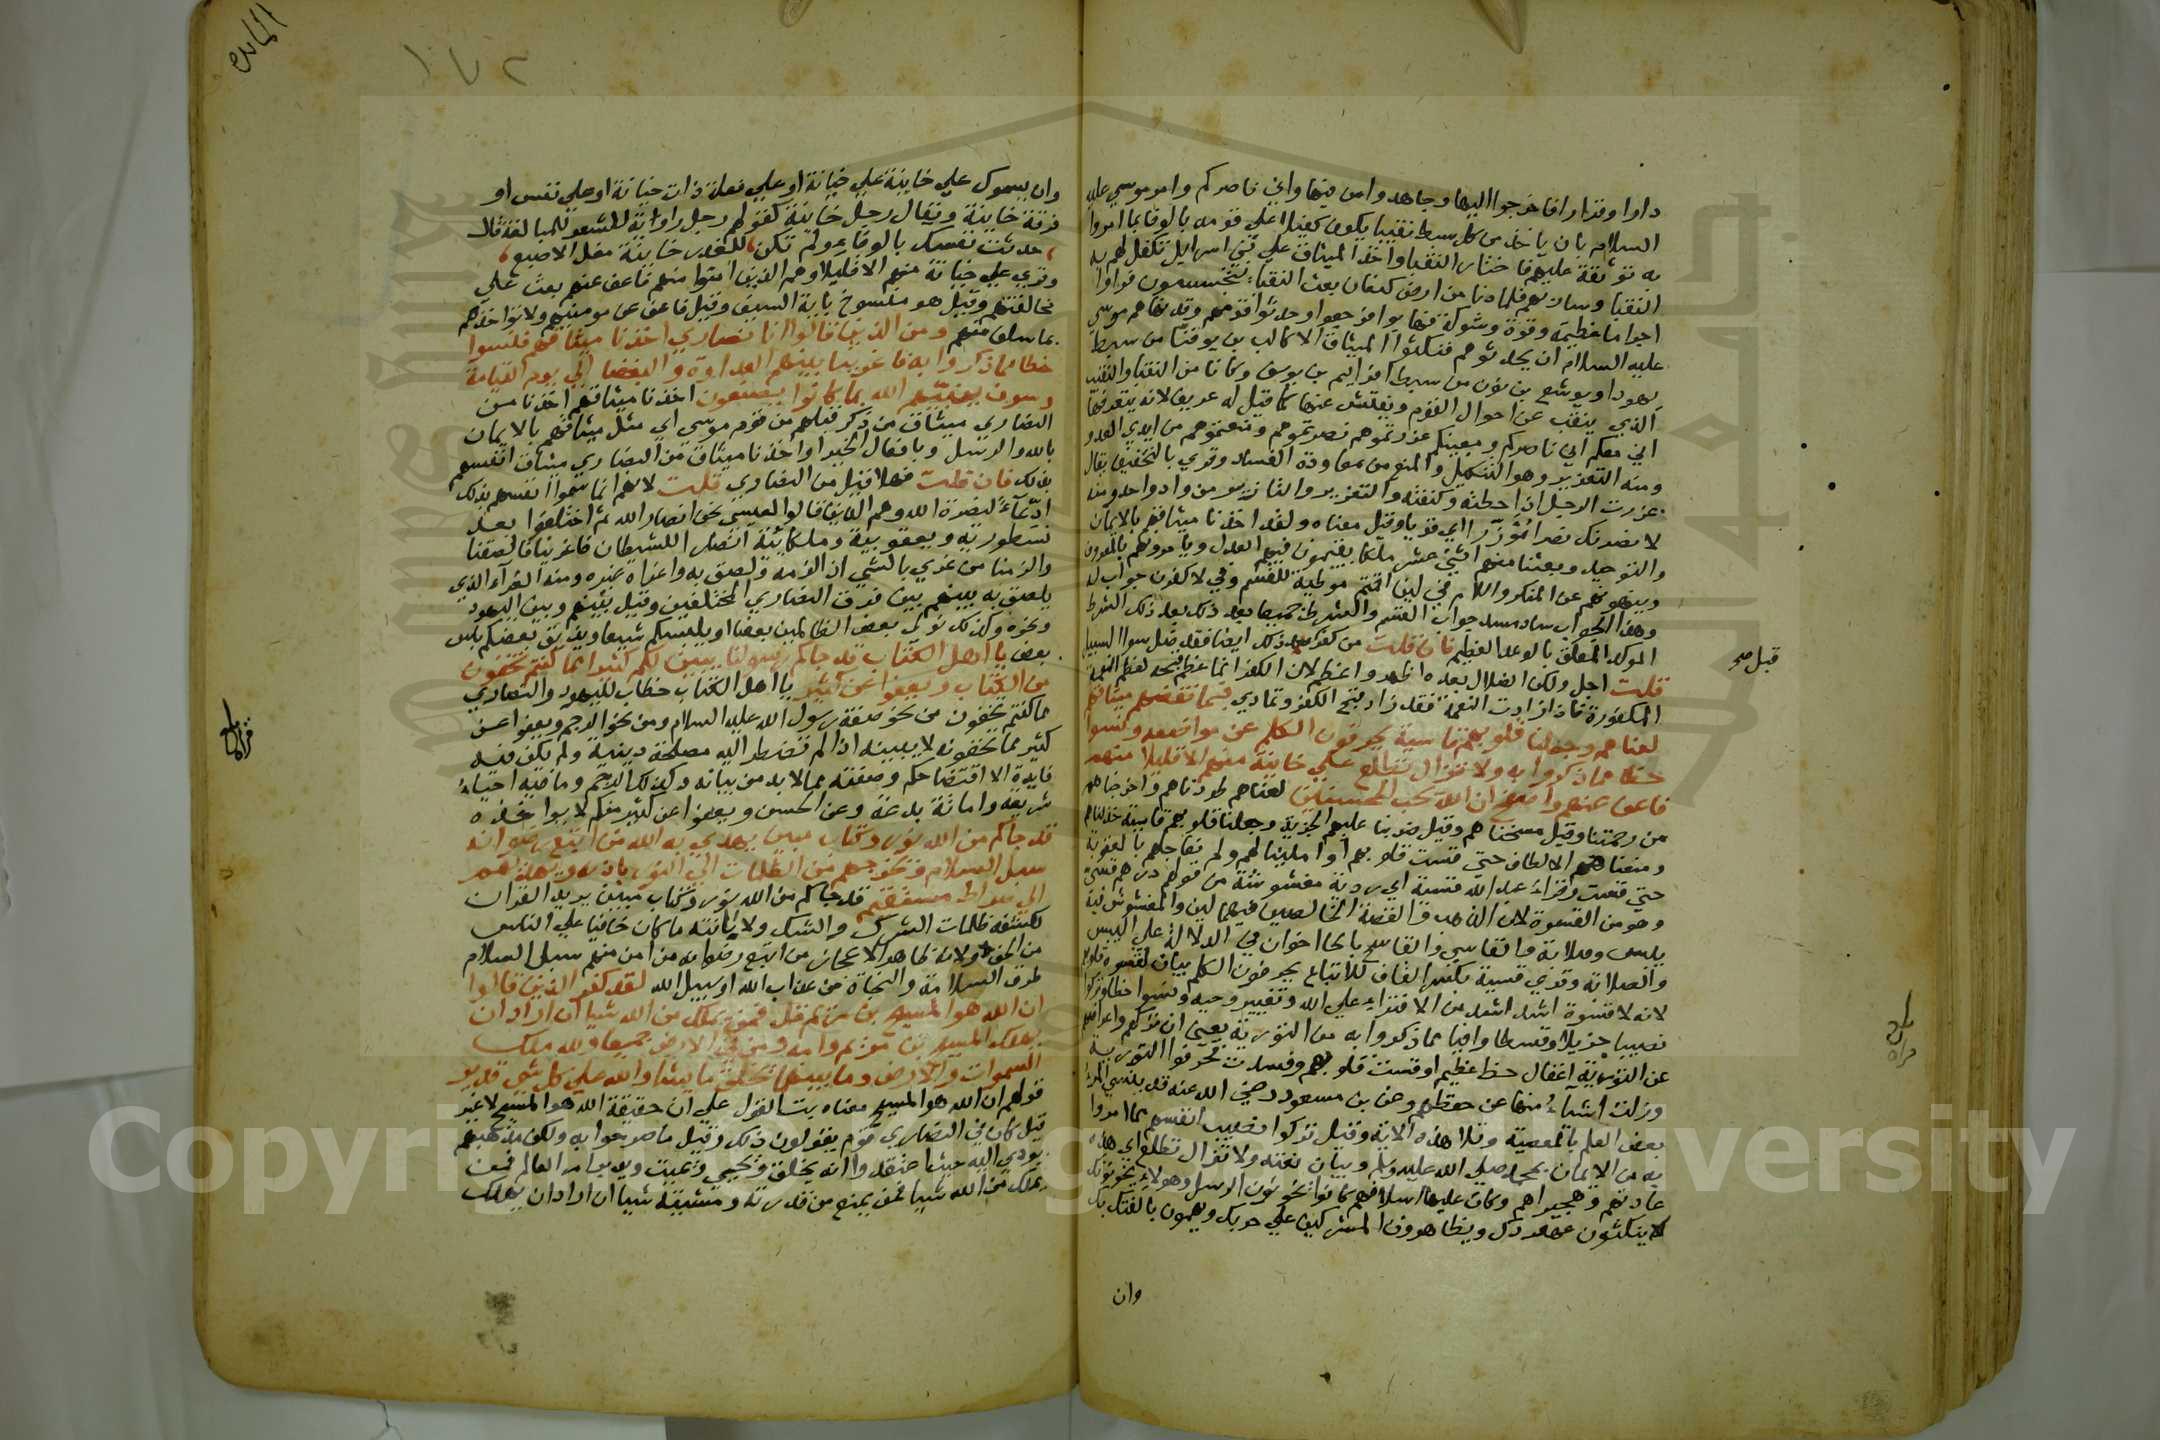 دارا وقرارا فاخرجوا اليها وجاهدوا من فيها واني ناصركم وامر موسى عليه
السلام بان ياخذ من كل سبط نقيبا يكون كفيلا علي قومه بالوفا بما امروا
به توثقة عليهم فاختار النقبا واخذ الميثاق علي بني اسرايل وتكفل لهم به
النقبا وسار بهم فلما دنا من ارض كنعان بعث النقباء يتجسسون فراوا
اجراما عظيمة وقوة وشوكة فهابوا فرجعوا وحدثوا قومهم وقد نهاهم موسي
عليه السلام ان يحدثوهم فنكثوا الميثاق الا كالب بن يوفنا من سبط
يهودا ويوشع بن نون من سبط افراييم بن يوسف وكانا من النقبا والنقيب
الذي ينقب عن احوال القوم ويفتش عنها كما قيل له عريف لانه يتعرفها
اني معكم اي ناصركم ومعينكم عزرتموهم نصرتموهم ومنعتموهم من ايدي العدو
ومنه التعزير وهو التنكيل والمنع من معاودة الفساد وقري بالتخفيف يقال
عزرت الرجل اذا حطته وكنفته والتعزير والتازير من واد واحد ومنه
لانصرنك نصرا مؤزرا اي قويا وقيل معناه ولقد اخذنا ميثاقهم بالايمان
والتوحيد وبعثنا منهم اثني عشر ملكا يقيمون فيهم العدل ويامرونهم بالمعروف
وينهونهم عن المنكر واللام في لين اقمتم موطية للقسم وفي لاكفرن جواب له
وهذا الجواب ساد مسد جواب القسم والشرط جميعا بعد ذلك بعد ذلك الشرط
الموكد المعلق بالوعد العظيم فان قلت من كفر ذلك ايضا فقد ضل سوا السبيل
قبل صح
قلت اجل ولكن الضلال بعده اظهر واعظم لان الكفر انما عظم قبحه لعظم النعمة
المكفورة فاذا زادت النعمة فقد زاد قبح الكفر وتمادي فبما نقضهم ميثاقهم
لعناهم وجعلنا قلوبهم قاسية يحرفون الكلم عن مواضعه ونسوا
حظا مما ذكروا به ولا تزال تطلع علي خاينة منهم الا قليلا منهم
فاعف عنهم واصفح ان الله يحب المحسنين لعناهم طردناهم واخرجناهم
من رحمتنا وقيل مسخناهم وقيل ضربنا عليهم الجزية وجعلنا قلوبهم قاسية خذلناهم
ومنعناهم الالطاف حتي قست قلوبهم او املينا لهم ولم نعاجلهم بالعقوبة
حتي قست وقراء عبد الله قسية اي ردية مغشوشة من قولهم درهم قسي
وهو من القسوة لان الذهب والفضة الخالصين فيهما لين والمغشوش فيه
يبس وصلابة والقاسي والقاسح بالحا اخوان في الدلالة علي اليبس
والصلابة وقري قسية بكسر القاف للاتباع يحرفون الكلم بيان لقسوة قلوبهم
لانه لا قسوة اشد من الافتراء علي الله وتغيير وحيه ونسوا حظا وتركوا
نصيبا جزيلا وقسطا وافيا مما ذكروا به من التورية يعني ان تركهم واعراضهم
عن التورية اغفال حظ عظيم او قست قلوبهم وفسدت فحرفوا التورية
وزلت اشياء منها عن حفظهم وعن بن مسعود رضي الله عنه قد ينسي المرء
بعض العلم بالمعصية وتلا هذه الاية وقيل تركوا نصيب انفسهم مما امروا
به من الايمان بمحمد صلي الله عليه وسلم وبيان نعته ولا تزال تطلع اي هذه
عادتهم وهجيراهم وكان عليها اسلافهم كانوا يخونون الرسل وهولاء يخونونك
ينكثون عهودك ويظاهرون المشركين علي حربك ويهمون بالفتك بك
وان
المايدة
١٧٢
وان يسموك علي خاينة علي خيانة او علي فعلة ذات خيانة او علي نفس او
فرقة خاينة ويقال رجل خاينة كقولهم رجل راوية للشعر للمبالغة قال
حدثت نفسك بالوفاء ولم تكن للغدر خاينة مغل الاصبع
وقري علي خيانة منهم الا قليلا وهم الذين امنوا منهم فاعف عنهم بعث علي
مخالفتهم وقيل هو منسوخ باية السيف وقيل فاعف عن مومنيهم ولا تواخذهم
بما سلف منهم ومن الذين قالوا انا نصاري اخذنا ميثاقهم فنسوا
حظا مما ذكروا به فاغرينا بينهم العداوة والبغضا الي يوم القيامة
وسوف ينبئهم الله بما كانوا يصنعون اخذنا ميثاقهم اخذنا من
النصاري ميثاق من ذكر قبلهم من قوم موسي اي مثل ميثاقهم بالايمان
بالله والرسل وبافعال الخير او اخذنا ميثاق من النصاري ميثاق انفسهم
بذلك فان قلت فهلا قيل من النصاري قلت لانهم انما سموا انفسهم بذلك
ادعاء لنصرة الله وهم الذين قالوا لعيسي نحن انصار الله ثم اختلفوا بعد
نسطورية ويعقوبية وملكانية انصارا للشيطان فاغرينا فالصقنا
والزمنا من غري بالشي اذا لزمه ولصق به واغراه غيره ومنه الغراء الذي
يلصق به بينهم بين فرق النصاري المختلفين وقيل بينهم وبين اليهود
ونحوه وكذلك نولي بعض الظالمين بعضا او يلبسكم شيعا ويذيق بعضكم باس
بعض يا اهل الكتاب قد جاكم رسولنا يبين لكم كثيرا مما كنتم تخفون
من الكتاب ويعفوا عن كثير يا اهل الكتاب خطاب لليهود والنصاري
مما كنتم تخفون من نحو صفة رسول الله عليه السلام ومن نحو الرجم ويعفوا عن
كثير مما تخفونه لا يبينه اذا لم تضطر اليه مصلحة دينية ولم يكن فيه
فايدة الا اقتضا حكم وصفته مما لا بد من بيانه وكذلك الرجم وما فيه احياء
شريعة واماتة بدعة وعن الحسن ويعفوا عن كثير منكم لا يواخذه
قد جاكم من الله نور وكتاب مبين يهدي به الله من اتبع رضوانه
سبل السلام ويخرجهم من الظلمات الي النور باذنه ويهديهم
الي صراط مستقيم قد جاكم من الله نور وكتاب مبين يريد القران
لكشفه ظلمات الشرك والشك ولابانته ما كان خافيا علي الناس
من الحق او لانه ظاهر الاعجاز من اتبع رضوانه من امن منهم سبل السلام
طرق السلامة والنجاة من عذاب الله او سبيل الله لقد كفر الذين قالوا
ان الله هو المسيح بن مريم قل فمن يملك من الله شيا ان اراد ان
يهلك المسيح بن مريم وامه ومن في الارض جميعا ولله ملك
السموات والارض وما بينهما يخلق ما يشا والله علي كل شي قدير
قولهم ان الله هو المسيح معناه بت القول علي ان حقيقة الله هو المسيح لا غير
قيل كان في النصاري قوم يقولون ذلك وقيل ما صرحوا به ولكن مذهبهم
يودي اليه حيث اعتقدوا انه يخلق ويحيي ويميت ويدبر امر العالم فمن
يملك من الله شيا فمن يمنع من قدرته ومشيته شيا ان اراد ان يهلك
Copyright © King Saud University